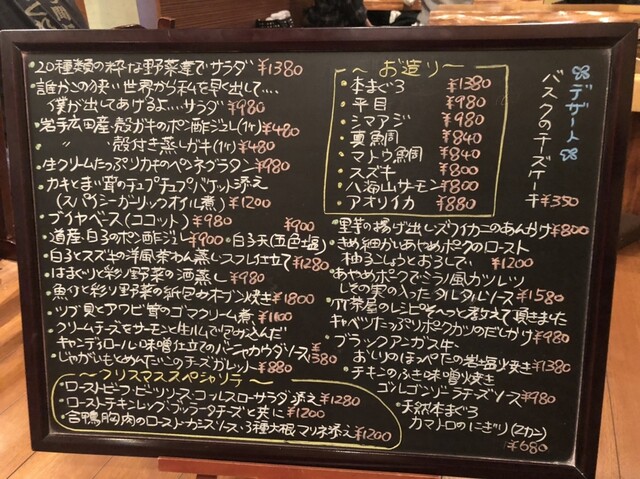 ・20種類の粋な野菜達でサラダ ¥1380
・誰かこの狭い世界から私を早く出して....
僕が出してあげるよ...サラダ ¥980
・岩手広田産・殻ガキのポン酢ジュレ(1ケ) ¥480
・〃 殻付き蒸しガキ(1ケ) ¥480
・生クリームたっぷりカキのペンネグラタン ¥980
・カキとまい茸のチュプチュプバケット添え
(スパイシーガーリックオイル煮) ¥1200
・ブイヤベース(ココット) ¥980
・道産・白子のポン酢ジュレ ¥900 ・白子天(五色塩) ¥900
・白子とスズキの洋風茶わん蒸しスフレ仕立て ¥1280
・はまぐりと彩り野菜の酒蒸し ¥980
・魚介と彩り野菜の紙包みオーブン焼き ¥1800
・ツブ貝とアワビ茸のゴマクリーム煮 ¥1100
・クリームチーズをサーモンと生ハムで包み込んだ
キャンディロール・味噌仕立てのバーニャカウダソース ¥1380
・じゃがいもとめんたいこのチーズガレット ¥880
～クリスマススペシャリテ～
・ローストビーフ・ビーツソース・コールスローサラダ添え ¥1280
・ローストチキンレッグ・ブッラータチーズと共に ¥1200
・合鴨胸肉のロースト・カシスソース・3種大根マリネ添え ¥1200
～お造り～
・本まぐろ ¥1380
・平目 ¥980
・シマアジ ¥980
・真鯛 ¥840
・マトウ鯛 ¥840
・スズキ ¥800
・八海山サーモン ¥800
・アオリイカ ¥880
デザート
バスクのチーズケーキ ¥350
・里芋の揚げ出しズワイカニのあんかけ ¥800
・きめ細かいあやめポークのロースト
柚子こしょうとおろしで ¥1200
・あやめポークでミラノ風カツレツ
しその実の入ったタルタルソース ¥1580
・竹茶屋のレシピをそ～っと教えて頂きました
キャベツたっぷりポークカツのだしかけ ¥980
・ブラックアンガス牛、
おしりのほっぺたの岩塩焼き ¥1380
・チキンのふき味噌焼き
ゴルゴンゾーラチーズソース ¥980
・天然本まぐろ
カマトロのにぎり(2カン) ¥680